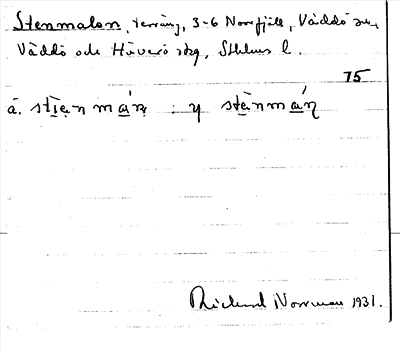 Stenmalen, terräng, 3-6 Norrfjäll, Väddö sn,
Väddö och Häverö skg, Sthlms l.
75
ä. sti̯ạn mạ́ṇ : y stạ̀nmạ́ṇ
Rickard Norrman 1931.